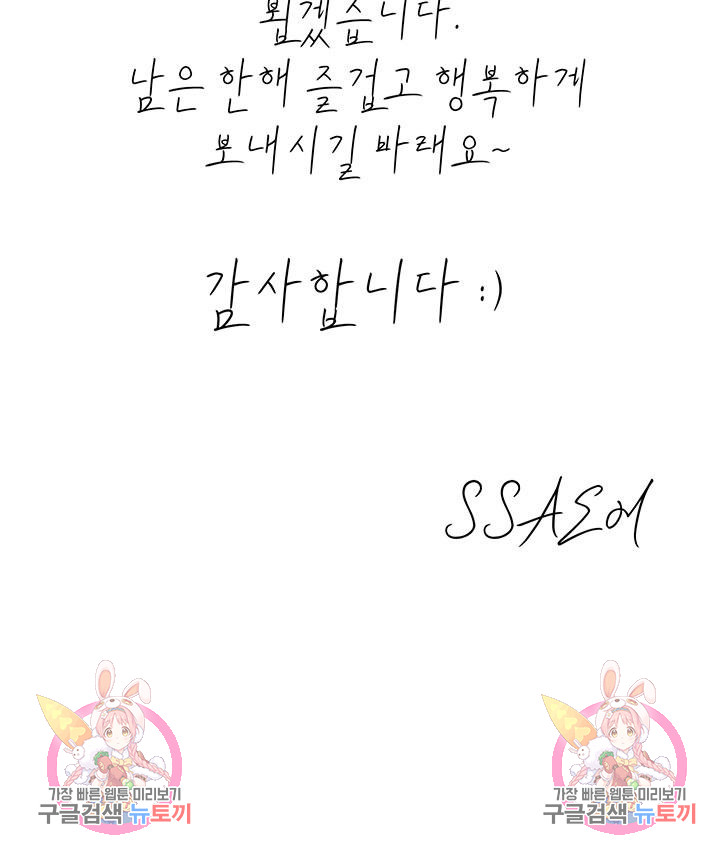 뵙겠습니다.
남은 한해 즐겁고 행복하게
보내시길 바래요~
감사합니다 :)
가장 빠른 웹툰 미리보기
구글검색 뉴토끼
가장 빠른 웹툰 미리보기
구글검색 뉴토끼